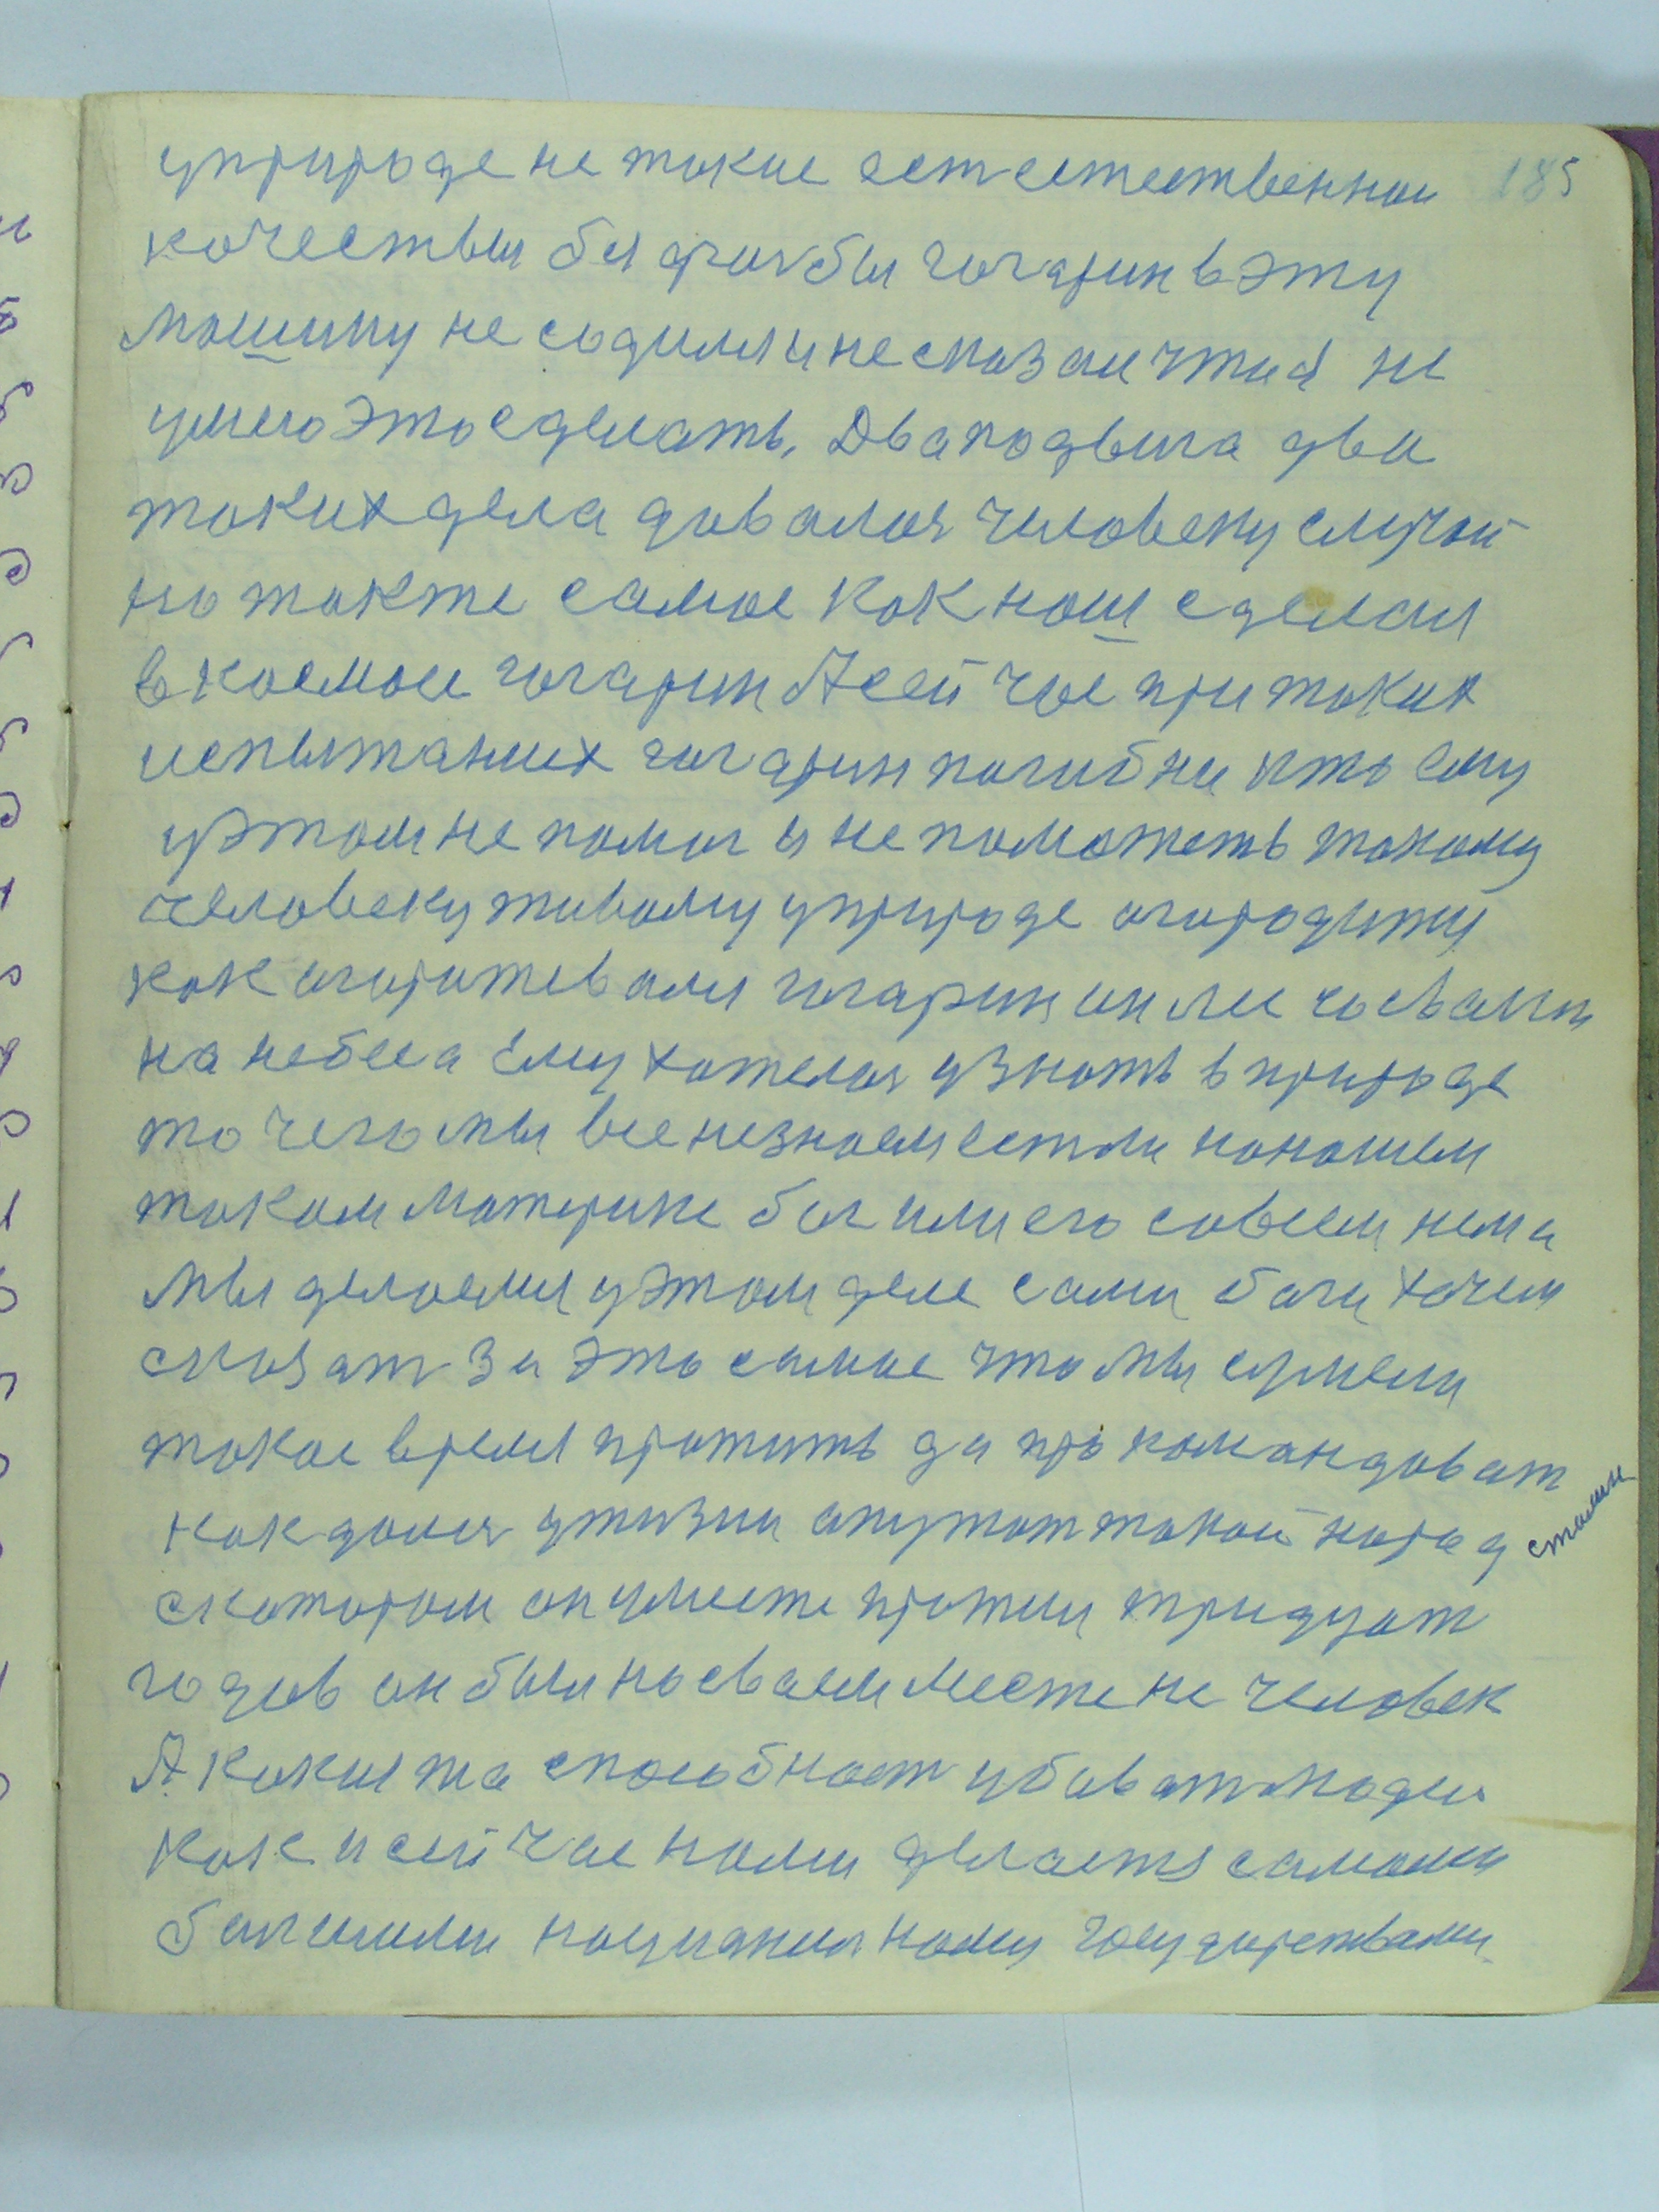 185
у природе не такие ест естественнаи
качествы бы друг бы гагарин в эту
машину не садился и не сказал что я не
умею это сделать. Два подвига два
таких дела давалося человеку случай
но также самое как наш сделал
в космосе гагарин А сейчас при таких
испытаниях гагарин погиб ни кто ему
у этом не помог и не поможеть такому
человеку живому у природе
как гагарин
на небеса ему хателося узнать в природе
то чего мы все незнаем ест ли на нашем
таком материке бог или его совсем нема
мы делаемся у этом деле сами боги хочем
сказат за это самое что мы сумели
такое время прожить да про командават
как далося у жизни такой народ сталин
с каторам он уместе прожил тридцат
годов он был на сваем месте не человек
А какия та способност убиват людей
как и сейчас нами делаетя самами
нацыянизнаму государствами